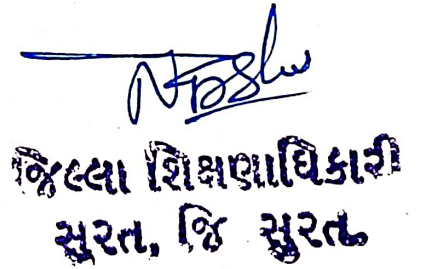 જિલ્લા શિક્ષણાધિકારી
સુરત, જિ સુરત.